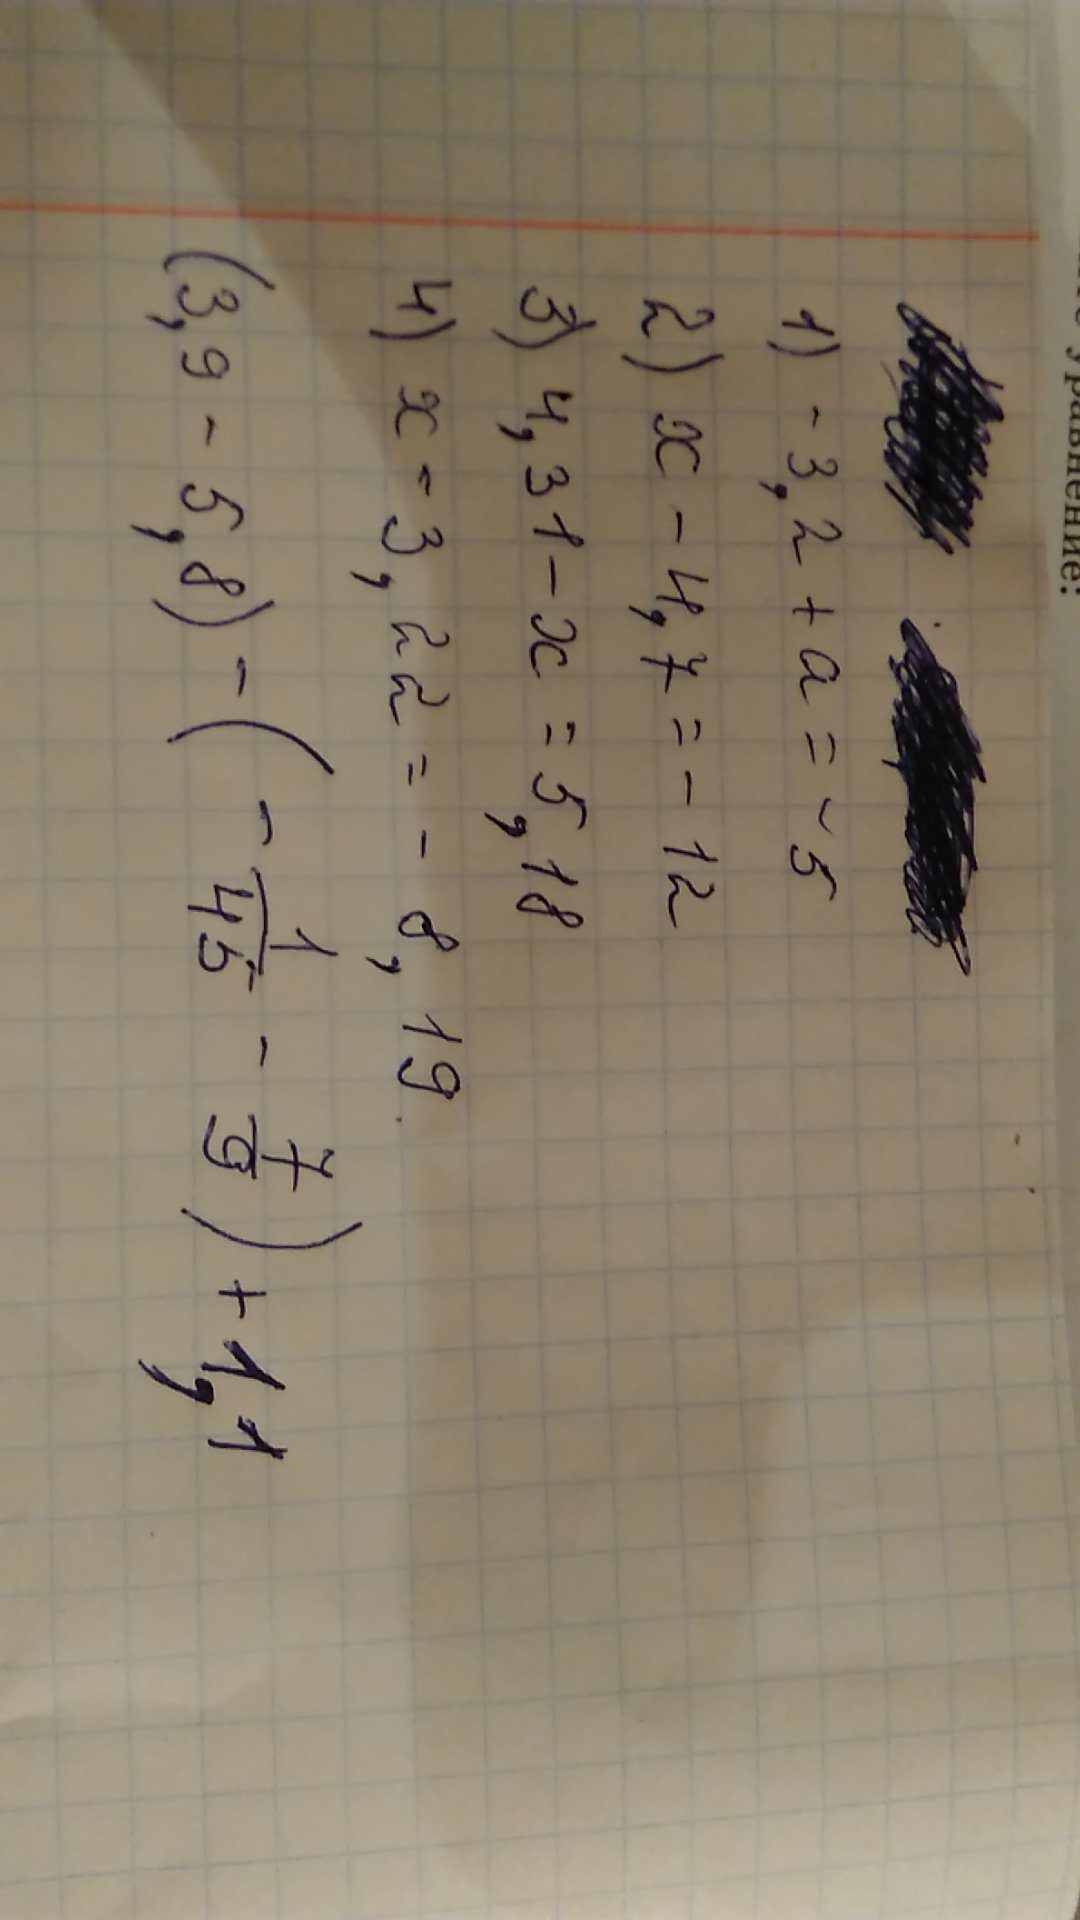 уравнение:
1) -3,2 + a = -5
2) x - 4,7 = -12
3) 4,31 - x = 5,18
4) x - 3,22 = -8,19
(3,9 - 5,8) - (- 1/45 - 7/9) + 1,1